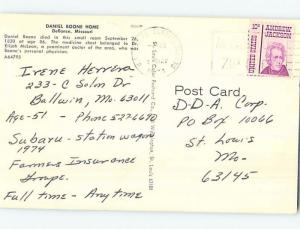 DANIEL BOONE HOME
Defiance, Missouri
Daniel Boone died in this small room September 26,
1820 at age 86. The medicine chest belonged to Dr.
Elijah McLean, a prominent doctor of the area, who was
Boone's personal physician.
A64795
Irene Herrera
233-C Solon Dr
Ballwin, Mo. 63011
Age-51 - Phone
Subaru - station wagon
1974
Farmers Insurance
Group.
Full time - Any time
10¢
ANDREW
JACKSON
UNITED STATES
Post Card
D-D-A. Corp.
PO Box 10066
St. Louis
Mo-
63145